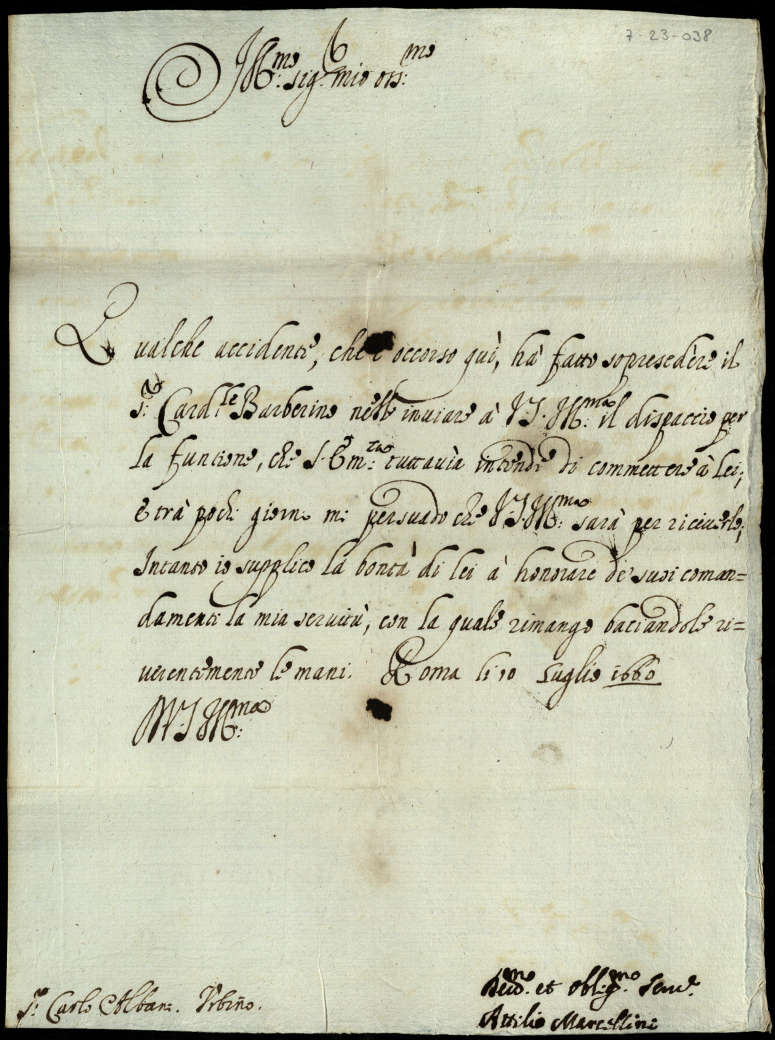 7-23-038
Ill.mo Sig.r mio oss.mo
Qualche accidente, che è occorso quì, hà fatto soprasedère il
S.r Card.le Barberino nell' inuiare à V.S. Ill.ma il dispaccio per
la funcione, che S. Em.za tuttauia intende di commettere à lei;
e trà pochi giorni mi persuado che V.S. Ill.ma sarà per riceuerlo;
Intanto io supplico la bontà di lei à honorare de' suoi coman=
damenti la mia seruitù, con la quale rimango baciandole ri=
uerentemente le mani. Roma li 10 Luglio 1660
Di V.S. Ill.ma
S.r Carlo Albani. Vrbino.
Deu.mo et obl.g.mo Seru.e
Attilio Marcellini